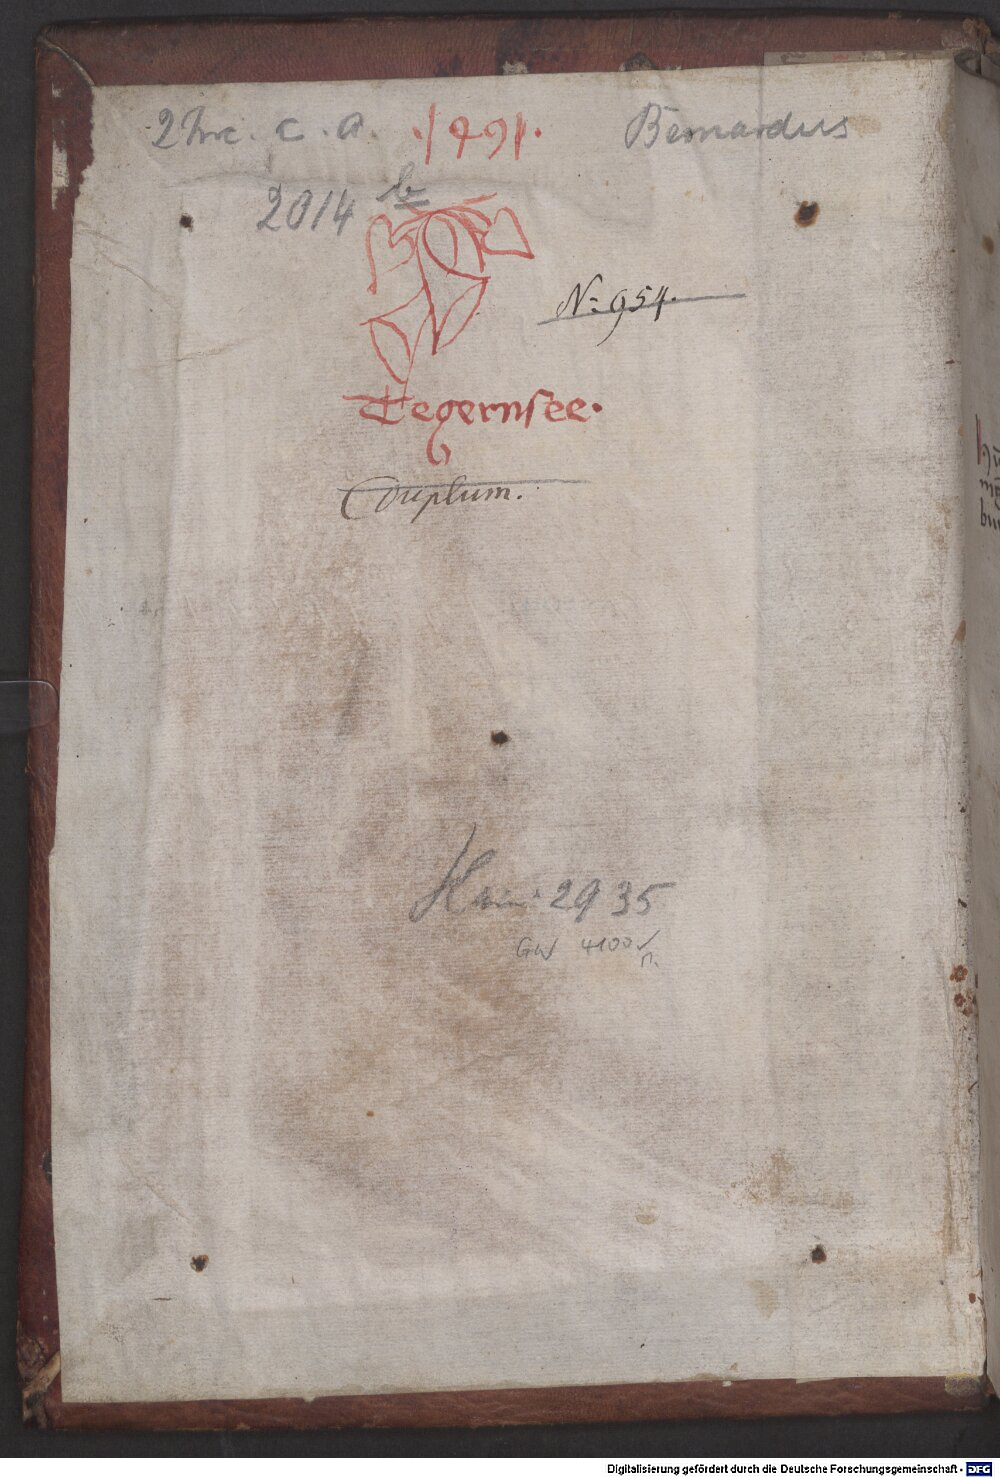 2 Inc. c. a. .1491. Bernardus
2014 b
N: 954.
Tegernsee.
Duplum.
Hain: 2935
GW 4100
Digitalisierung gefördert durch die Deutsche Forschungsgemeinschaft - DFG